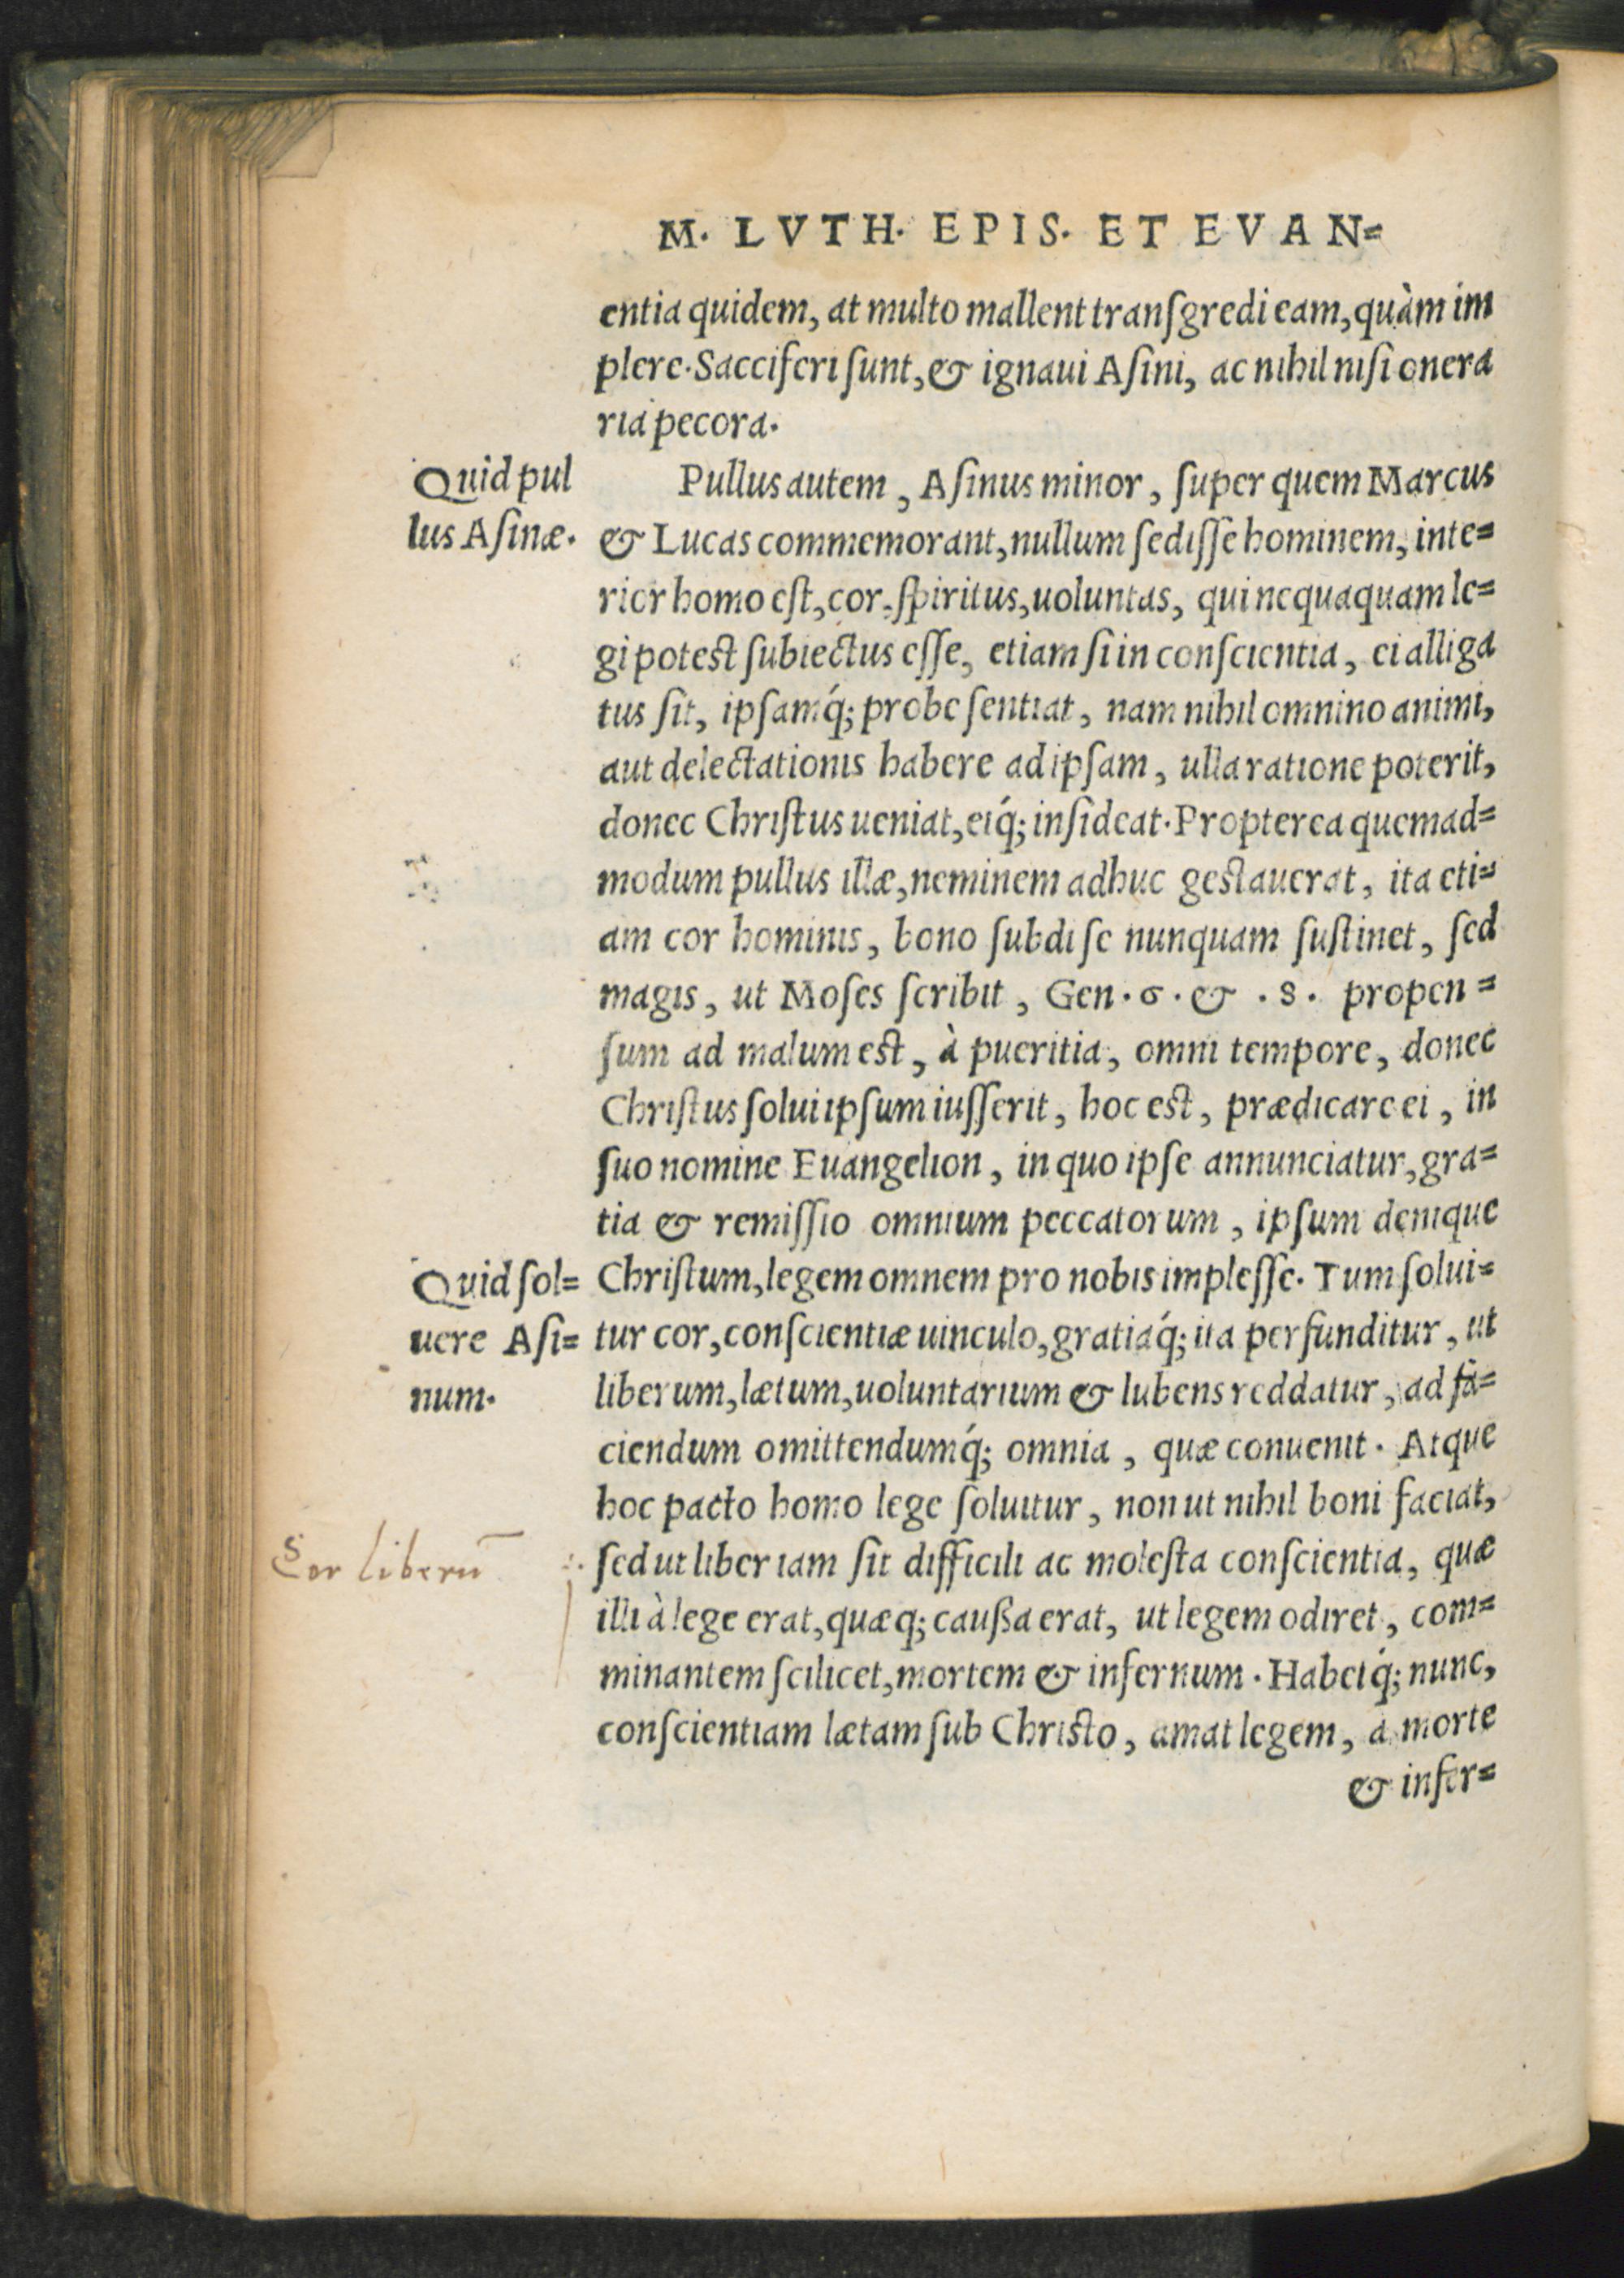 M. LVTH. EPIS. ET EVAN=
entia quidem, at multo mallent tranſgredi eam, quàm im
plere. Sacciferi ſunt, & ignaui Aſini, ac nihil niſi onera
ria pecora.
Quid pul
lus Aſinæ.
Pullus autem, Aſinus minor, ſuper quem Marcus
& Lucas commemorant, nullum ſediſſe hominem, inte=
rior homo eſt, cor, ſpiritus, uoluntas, qui nequaquam le=
gi poteſt ſubiectus eſſe, etiam ſi in conſcientia, ei alliga
tus ſit, ipſamq́; probe ſentiat, nam nihil omnino animi,
aut delectationis habere ad ipſam, ulla ratione poterit,
donec Chriſtus ueniat, eiq́; inſideat. Propterea quemad=
modum pullus illæ, neminem adhuc geſtauerat, ita eti=
am cor hominis, bono ſubdi ſe nunquam ſuſtinet, ſed
magis, ut Moſes ſcribit, Gen. 6. & . 8. propen=
ſum ad malum eſt, à pueritia, omni tempore, donec
Chriſtus ſolui ipſum iuſſerit, hoc eſt, prædicare ei, in
ſuo nomine Euangelion, in quo ipſe annunciatur, gra=
tia & remiſſio omnium peccatorum, ipſum denique
Quid ſol=
uere Aſi=
num.
Chriſtum, legem omnem pro nobis impleſſe. Tum ſolui=
tur cor, conſcientiæ uinculo, gratiaq́; ita perfunditur, ut
liberum, lætum, uoluntarium & lubens reddatur, ad fa=
ciendum omittendumq́; omnia, quæ conuenit. Atque
hoc pacto homo lege ſoluitur, non ut nihil boni faciat,
Cor liberū
ſed ut liber iam ſit difficili ac moleſta conſcientia, quæ
illi à lege erat, quæq; caußa erat, ut legem odiret, com=
minantem ſcilicet, mortem & infernum. Habetq́; nunc,
conſcientiam lætam ſub Chriſto, amat legem, a morte
& infer=